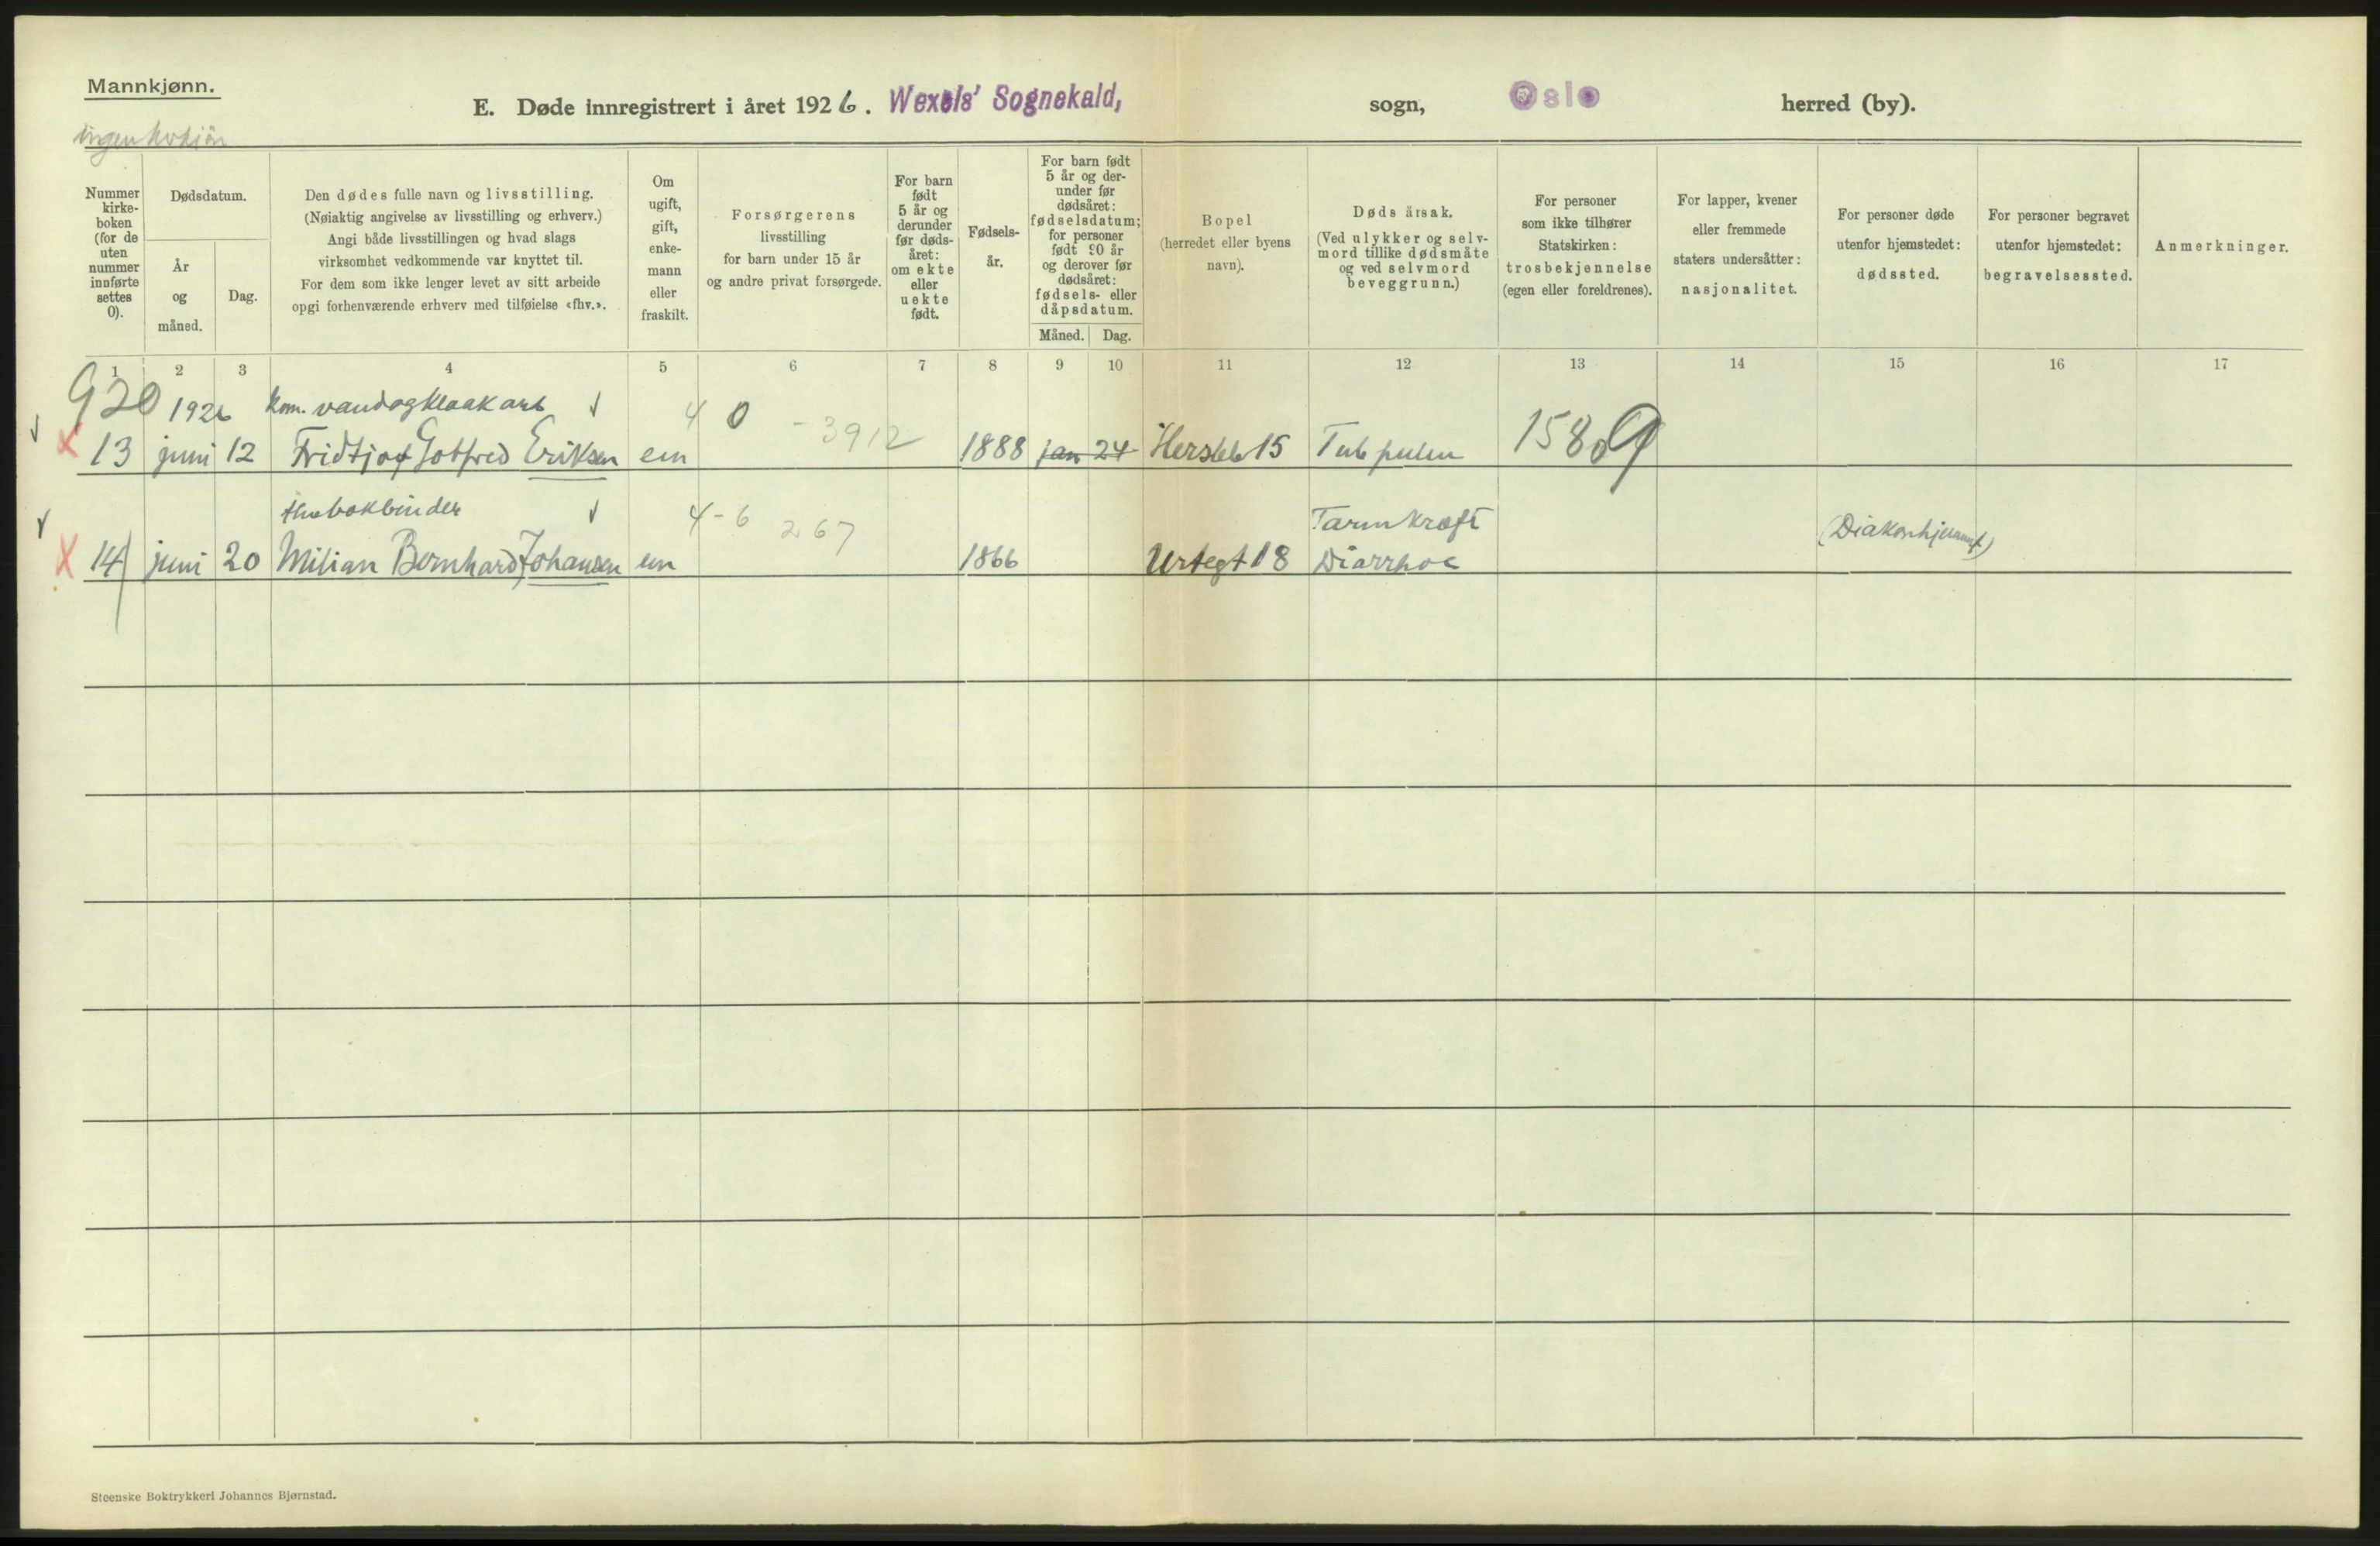 Mannkjønn.
E. Døde innregistrert i året 1926. Wexels' Sognekald, sogn, Oslo herred (by).
ingen
Nummer kirke-boken (for de uten nummer innførte settes 0).
Dødsdatum.
År og måned.
Dag.
Den dødes fulle navn og livsstilling.
(Nøiaktig angivelse av livsstilling og erhverv.)
Angi både livsstillingen og hvad slags
virksomhet vedkommende var knyttet til.
For dem som ikke lenger levet av sitt arbeide
opgi forhenværende erhverv med tilføielse «fhv.».
Om ugift, gift, enke-mann eller fraskilt.
Forsørgerens
livsstilling
for barn under 15 år
og andre privat forsørgede.
For barn født 5 år og derunder før døds-året: om ekte eller uekte født.
Fødsels-år.
For barn født 5 år og der-under før dødsåret: fødselsdatum; for personer født 90 år og derover før dødsåret: fødsels- eller dåpsdatum.
Måned. Dag.
Bopel
(herredet eller byens
navn).
Døds årsak.
(Ved ulykker og selv-
mord tillike dødsmåte
og ved selvmord
beveggrunn.)
For personer
som ikke tilhører
Statskirken:
trosbekjennelse
(egen eller foreldrenes).
For lapper, kvener
eller fremmede
staters undersåtter:
nasjonalitet.
For personer døde
utenfor hjemstedet:
dødssted.
For personer begravet
utenfor hjemstedet:
begravelsessted.
Anmerkninger.
1 2 3 4 5 6 7 8 9 10 11 12 13 14 15 16 17
920 1926 kom. vandogkloak arb 4 0 - 3912
13 juni 12 Fridtjof Gotfred Eriksen em 1888 jan 24 Hersleb 15 Tub pulm 1580
fhv bokbinder 4-6 267 Tarmkræft (Diakonhjemmet)
14 juni 20 Milian Bernhard Johansen em 1866 Urtegt 18 Diarrhoe
Steenske Boktrykkeri Johannes Bjørnstad.